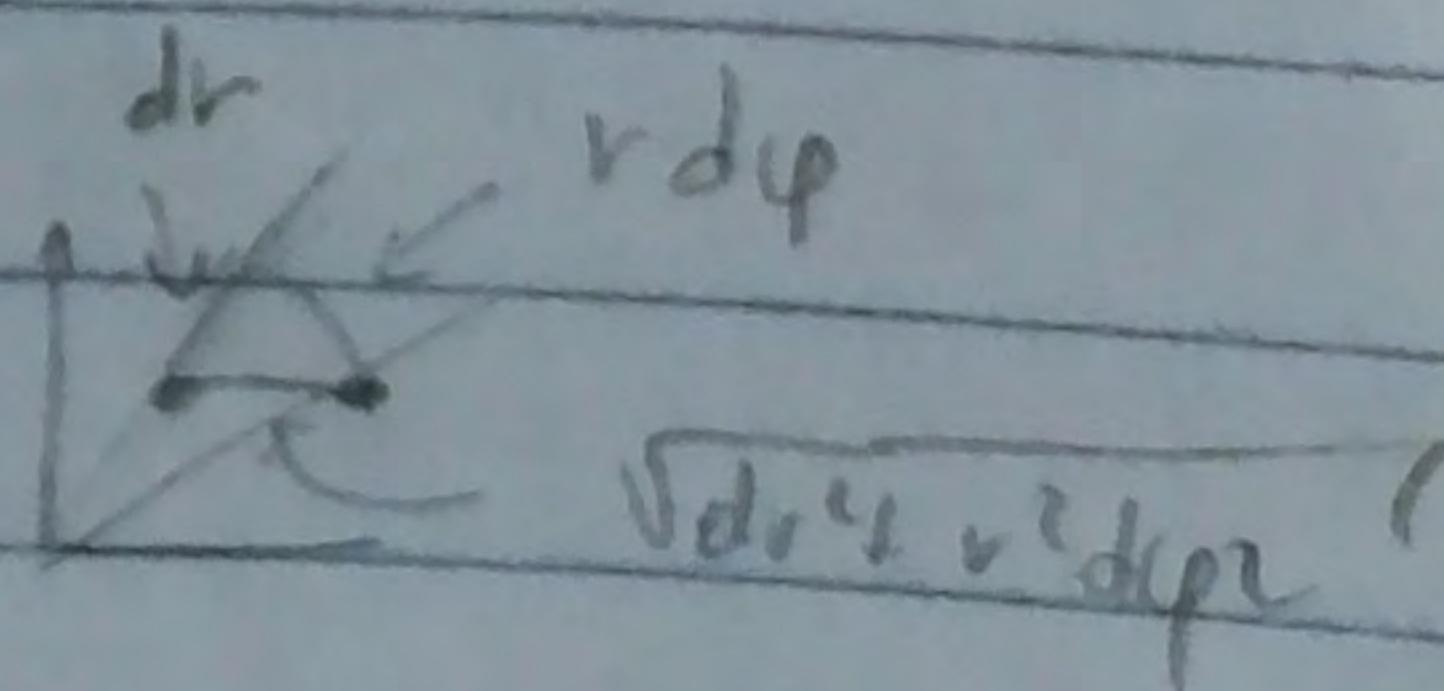 dr
r dφ
√dr²+ r²dφ²